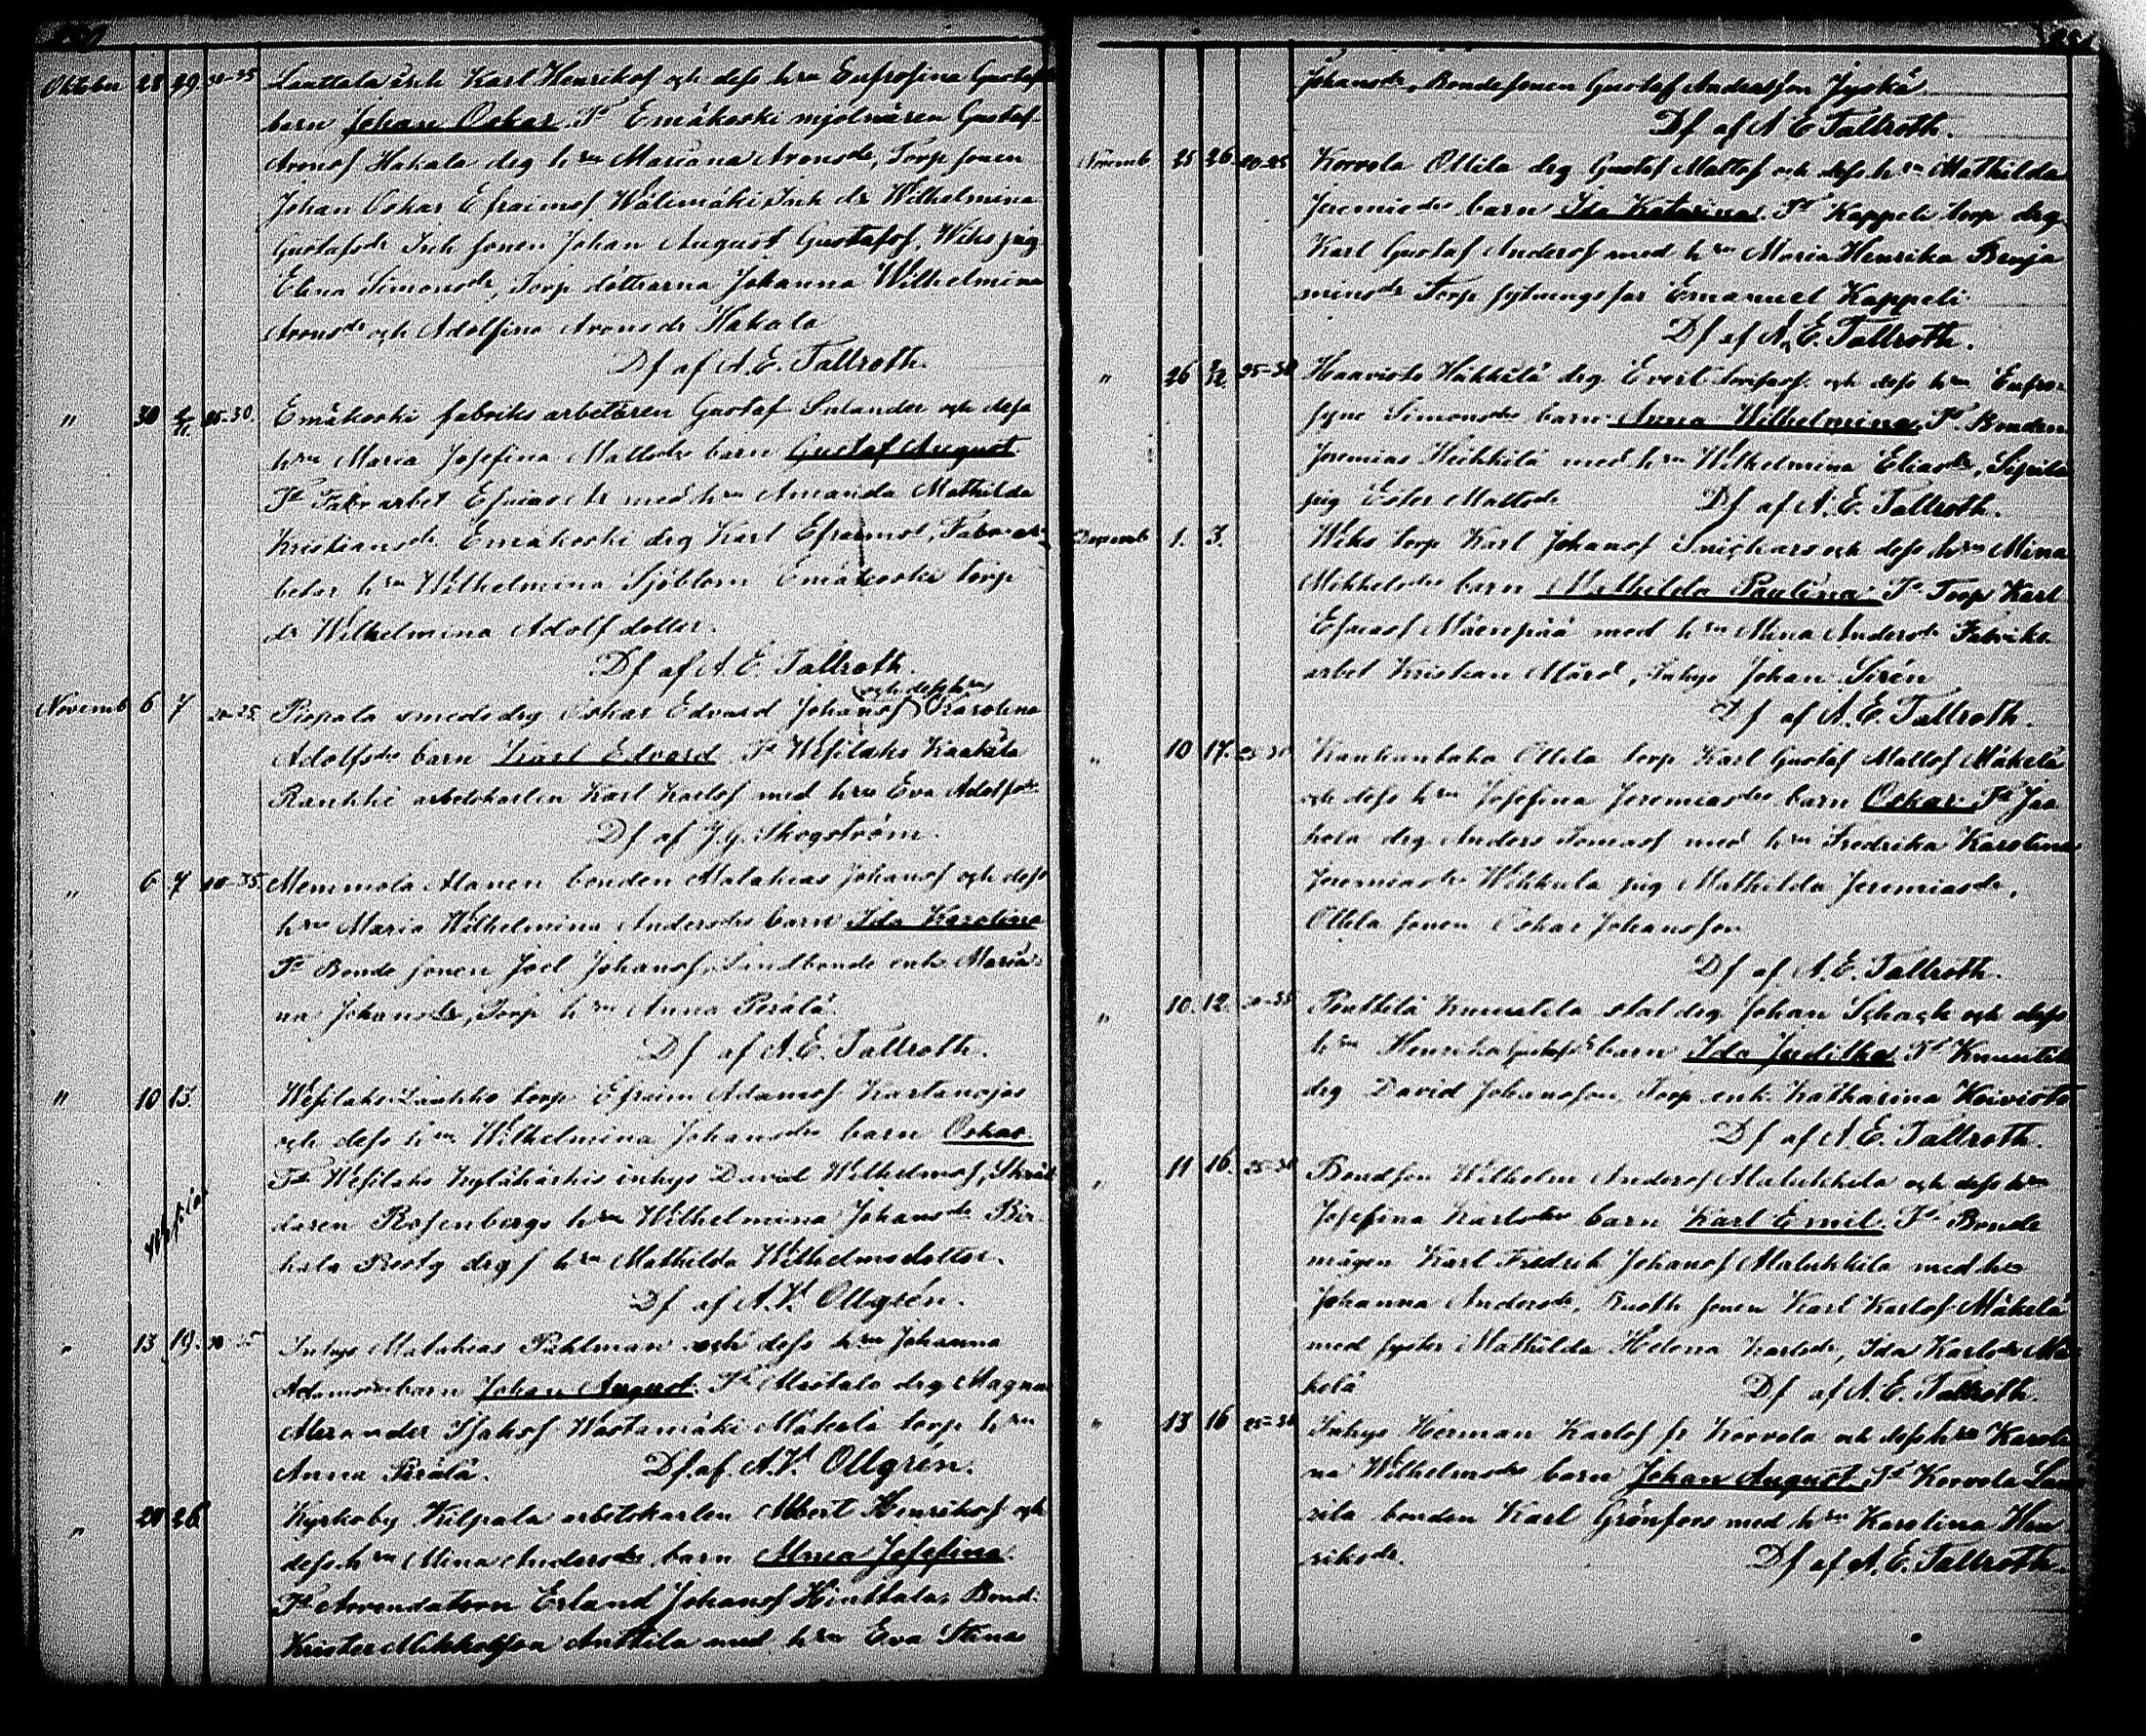 Oktober 28 29. 30-35 Lauttala Inh Karl Henriksſ och deſs hru Eufrosina Gustafs
barn Johan Oskar. Ft Emäkoski mjölnären Gustaf
Aronsſ Hakala drg hru Mariana Aronsdr, Torp sonen
Johan Oskar Efraimsſ Wälimäki, Inh dr Wilhelmina
Gustafsdr Inh sonen Johan August Gustafsſ, Wiks pig
Elina Simonsdr, Torp döttrarna Johanna Wilhelmina
Aronsdr och Adolfina Aronsdr Hakala
Df af A. E. Tallroth.
" 30 2/11 25-30. Emäkoski fabriksarbetaren Gustaf Salander och deſs
hru Maria Josefina Mattsdr barn Gustaf August
Ft Fabr arbet Esaias med hru Amanda Mathilda
Kristiansdr Emäkoski drg Karl Efraimsſ, Fabr ar-
betar hru Wilhelmina Sjöblom Emäkoski torp
dr Wilhelmina Adolfdotter.
Df af A. E. Tallroth.
Novemb 6 7 20-25. smedsdrg Oskar Edvard Johansſ och deſs hru Karolina
Adolfsdr barn Karl Edvard. Ft Weſilaks
Rankki arbetskarlen Karl Karlsſ med hru Eva Adolfsdr
Df af J. G. Skogström.
" 6 7 Memmola Alanen bonden Matahias Johansſ och deſs
hru Maria Wilhelmina Andersdr barn Ida Karolina
Ft Bonde sonen Joel Johansſ, Landbonde enk. Maria-
na Johansdr, Torp hru Anna Perälä.
Df af A. E. Tallroth.
" 10 13. Weſilaks Laukko torp Efraim Adamsſ Kartanoja
och deſs hru Wilhelmina Johansdr barn Oskar.
Ft Weſilaks inhys David Wilhelmsſ, Skräd
daren Rosenbergs hru Wilhelmina Johansdr Bir-
kala drgs hru Mathilda Wilhelmsdotter.
Df af A. V. Ollgrén.
" 13 19. 30-35 Inhys Matahias Pihlman och deſs hru Johanna
Adamsdr barn Johan August. Ft drg Magnus
Alexander Isaksſ Wästämäki Mäkelä torp hru
Anna Perälä. Df. af. A. V. Ollgrén.
" 24 26 Kyrkoby Kilpala arbetskarlen Albert Henriksſ och
deſs hru Mina Andersdr barn Josefina.
Ft Arrendatorn Erland Johansſ Hinttala, Bond.
Krister Mikkelsſon Anttila med hru Eva Stina
Johansdr, Bondesonen Gustaf Andersson Jyskä
Df af A E Tallroth.
Novemb 25 26. 20-25 Korvola Ottila drg Gustaf Mattsſ och deſs hru Mathilda
Jeremiedr barn Ida Katarina. Ft Kappeli torp drg
Karl Gustaf Andersſ med hru Maria Henrika Benja
minsdr Torp sytningsfar Emanuel Kappeli.
Df af A. E. Tallroth.
" 26 25-30 Haavisto Häkkilä drg Evert och deſs hru Eufro-
syne Simonsdr barn Anna Wilhelmina. Ft Bonden
Jeremias Heikkilä med hru Wilhelmina Eliasdr, Sipila
pig Ester Mattsdr Df af A. E. Tallroth.
Decemb 1. 3. Wiks torp Karl Johansſ Snickars och deſs hru Mina
Mikkelsdr barn Mathilda Paulina. Ft Torp Karl
Esaiasſ Mäenpää med hru Mina Andersdr Fabriks
arbet Kristian Mård, Inhys Johan Sirén
Df af A. E. Tallroth.
" 10 17. 25-30 Ottila torp Karl Gustaf Mattsſ Mäkelä
och deſs hru Josefina Jeremiasdr barn Oskar. Ft Jaa
kola drg Anders Tomasſ med hru Fredrika Karolina
Jeremiasdr Wikkula pig Mathilda Jeremiasdr,
Ottila sonen Oskar Johansson
Df af A. E. Tallroth.
" 10. 12. 30-35 Penttilä Knuutila stat drg Johan Schack och deſs
hru Henrika Gustafsdr barn Ida Juditha Ft Knuutila
drg David Johansson, Torp enk. Katharina Koivisto
Df af A. E. Tallroth.
" 11 16. 25-30 Bondson Wilhelm Andersſ Alakkila och deſs hru
Josefina Karlsdr barn Karl Emil. Ft Bonde
mågen Karl Fredrik Johansſ med hru
Johanna Andersdr, sonen Karl Karlsſ Mäkelä
med syster Mathilda Helena Karlsdr, Ida Karlsdr Mä-
kelä Df af A. E. Tallroth.
" 13 16 25-30 Inhys Herman Karlsſ fr Korvola och deſs hru Karoli
na Wilhelmsdr barn Johan August. Ft Korvola
bonden Karl Grönfors med hru Karolina Hen
riksdr. Df af A. E. Tallroth.